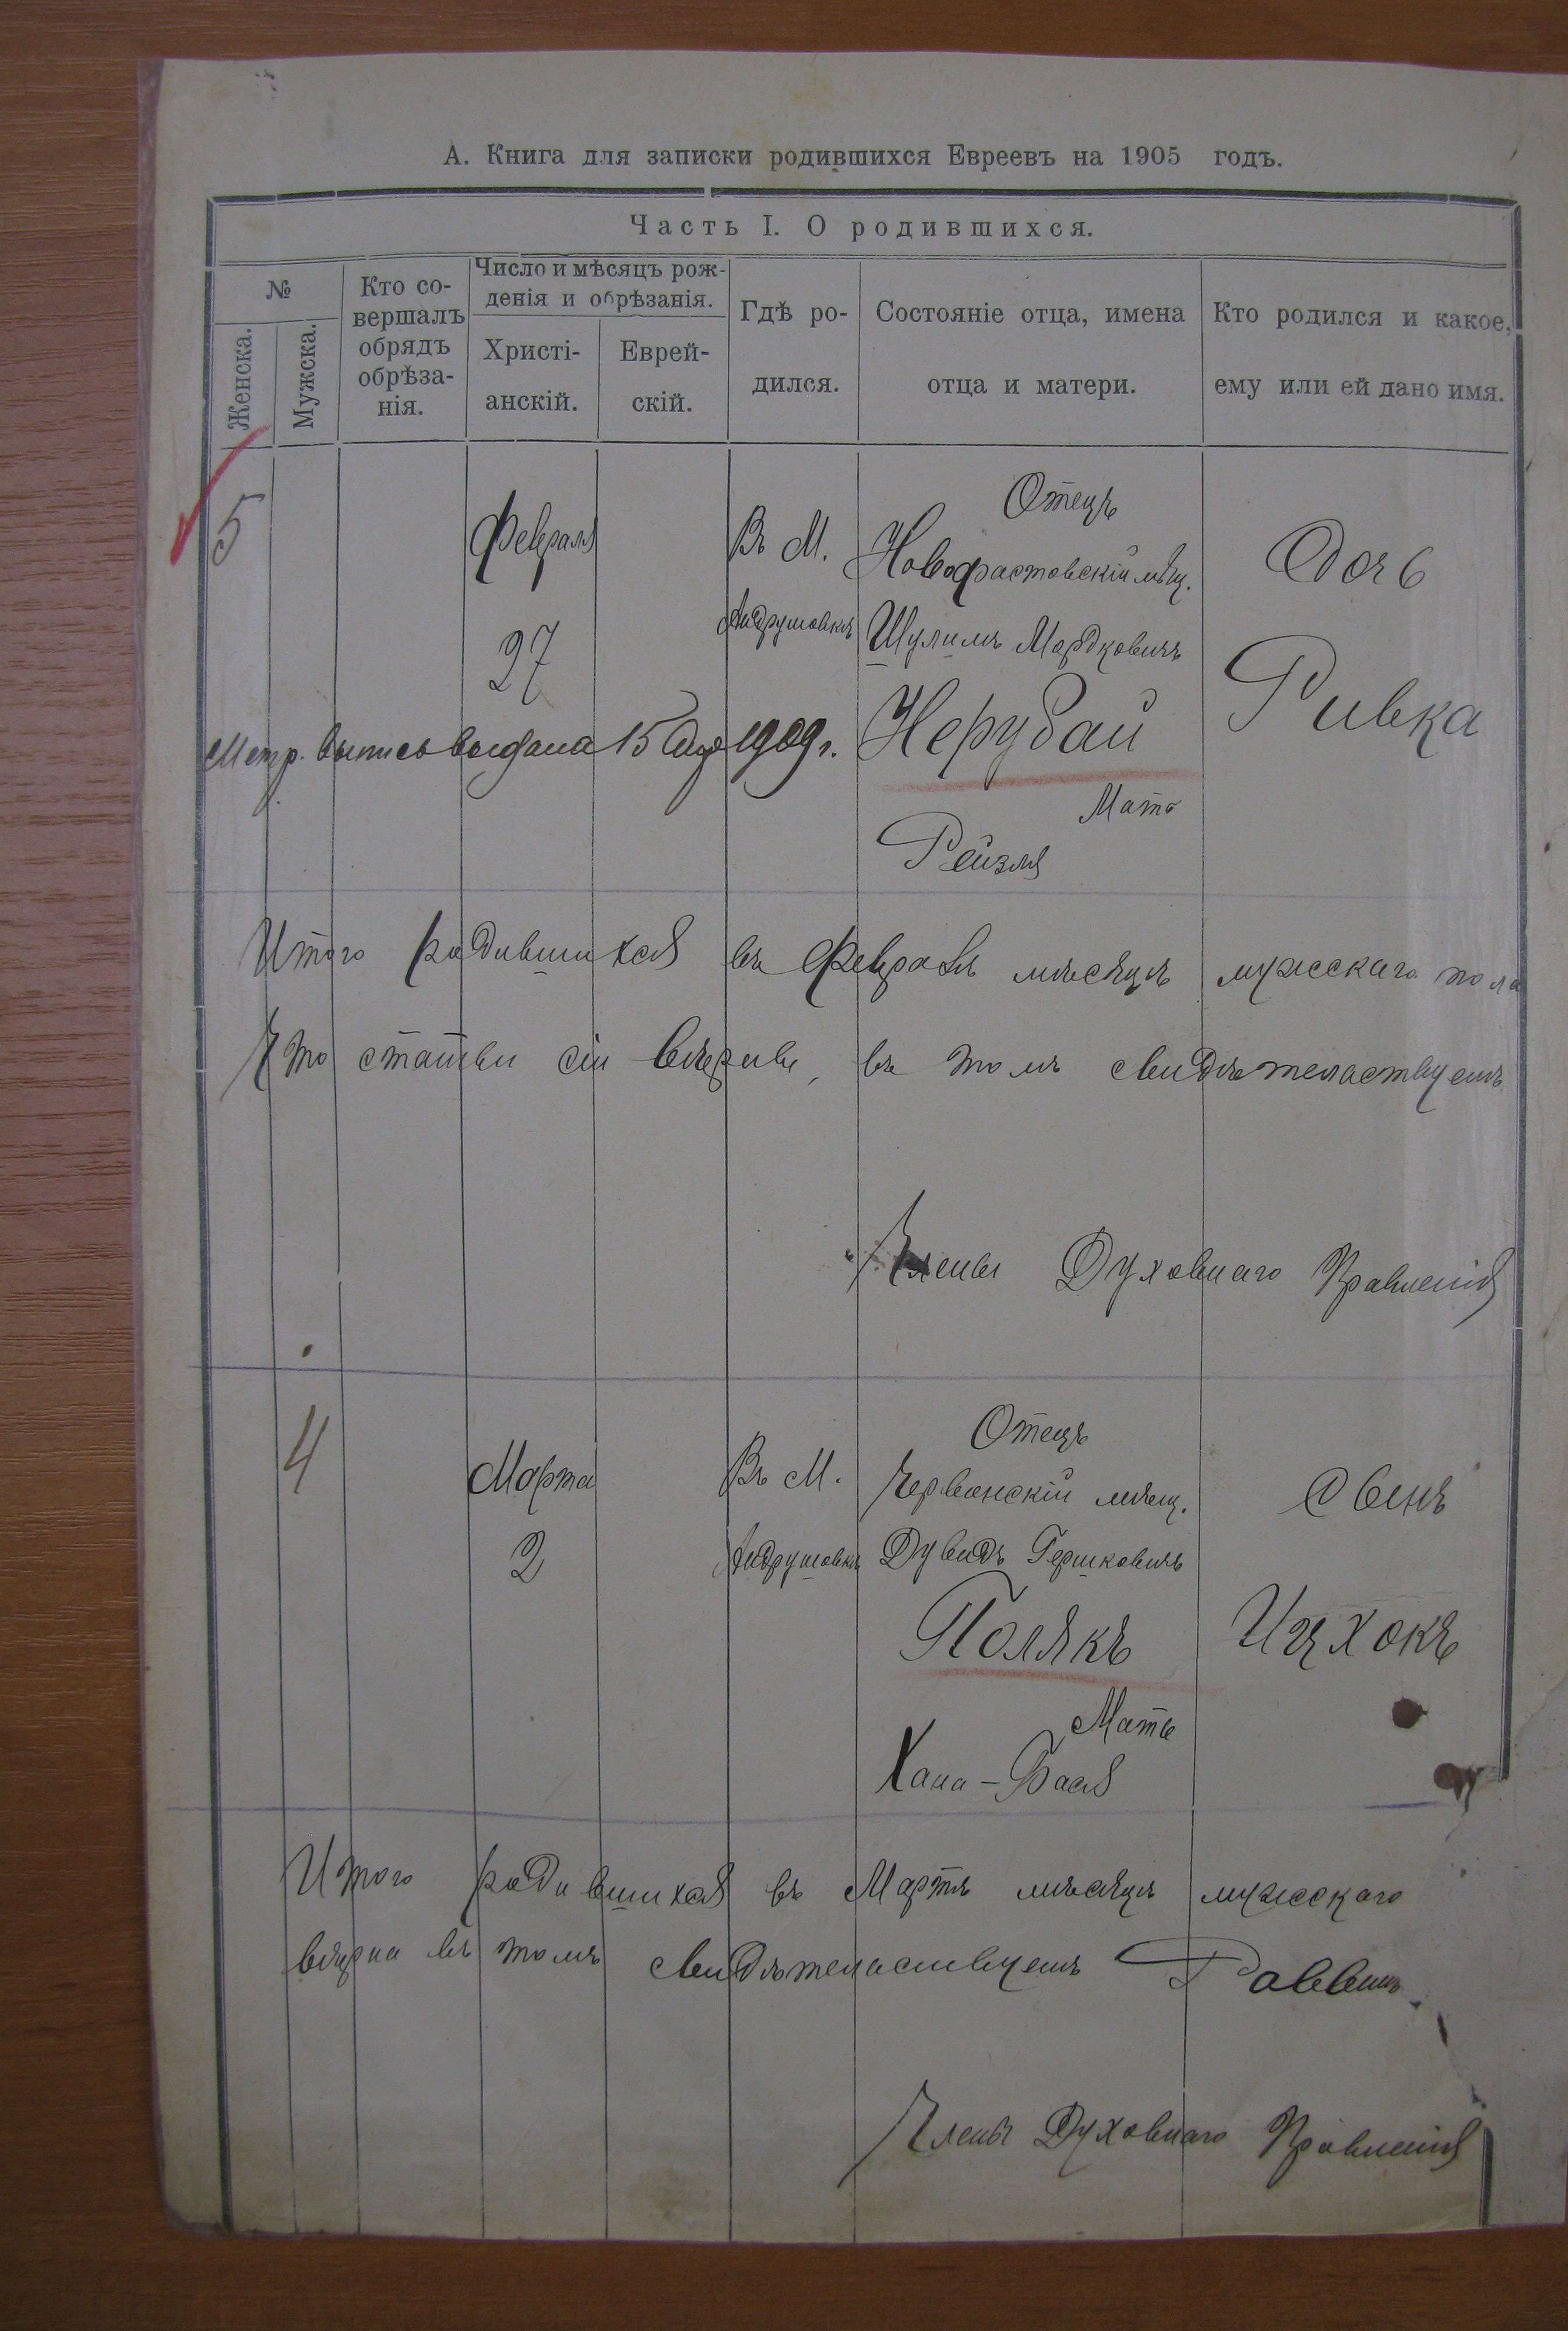 А. Книга для записки родившихся Евреевъ на 1905 годъ.
Часть I. О родившихся.
№
Женска.
Мужска.
Кто со-
вершалъ
обрядъ
обрѣза-
нія.
Число и мѣсяцъ рож-
денія и обрѣзанія.
Христі-
анскій.
Еврей-
скій.
Гдѣ ро-
дился.
Состояніе отца, имена
отца и матери.
Кто родился и какое,
ему или ей дано имя.
5
Февраля
27
Въ М.
Андрушовкѣ
Отецъ
Новофастовскій мѣщ.
Шулимъ Мордковичъ
Нерубай
Мать
Рейзля
Дочь
Ривка
Метр. выпись выдана 15 1909 г.
Итого родившихся въ Февралѣ мѣсяцѣ мужскаго пола
Что статьи сіи вѣрны, въ томъ свидѣтельствуемъ
Члены Духовнаго Правленія
4
Марта
2
Въ М.
Андрушовкѣ
Отецъ
мѣщ.
Дувидъ Гершковичъ
Полякъ
Мать
Хана-Бася
Сынъ
Ицхокъ
Итого родившихся въ Мартѣ мѣсяцѣ мужскаго
вѣрна въ томъ свидѣтельствуемъ Раввинъ
Члены Духовнаго Правленія